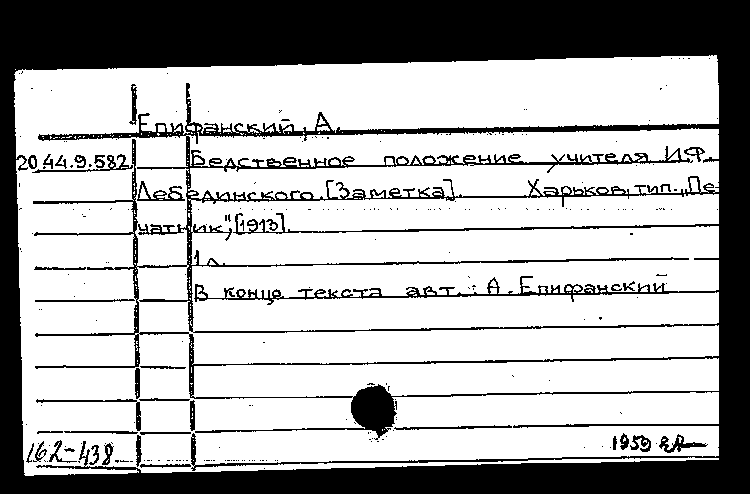 Епифанский, А.
20.44.9.582 Бедственное положение учителя И.Ф.
Лебединского. [Заметка]. Харьков, тип. „Пе-
чатник", [1913].
1 л.
В конце текста авт.: А. Епифанский
162-438 1959